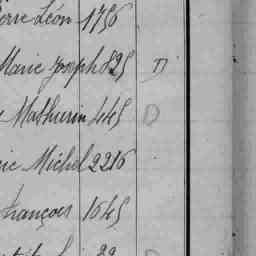 Pierre Léon 1756
Marie Joseph 825 D
Mathurin 445 D
Michel 2216
François 1645